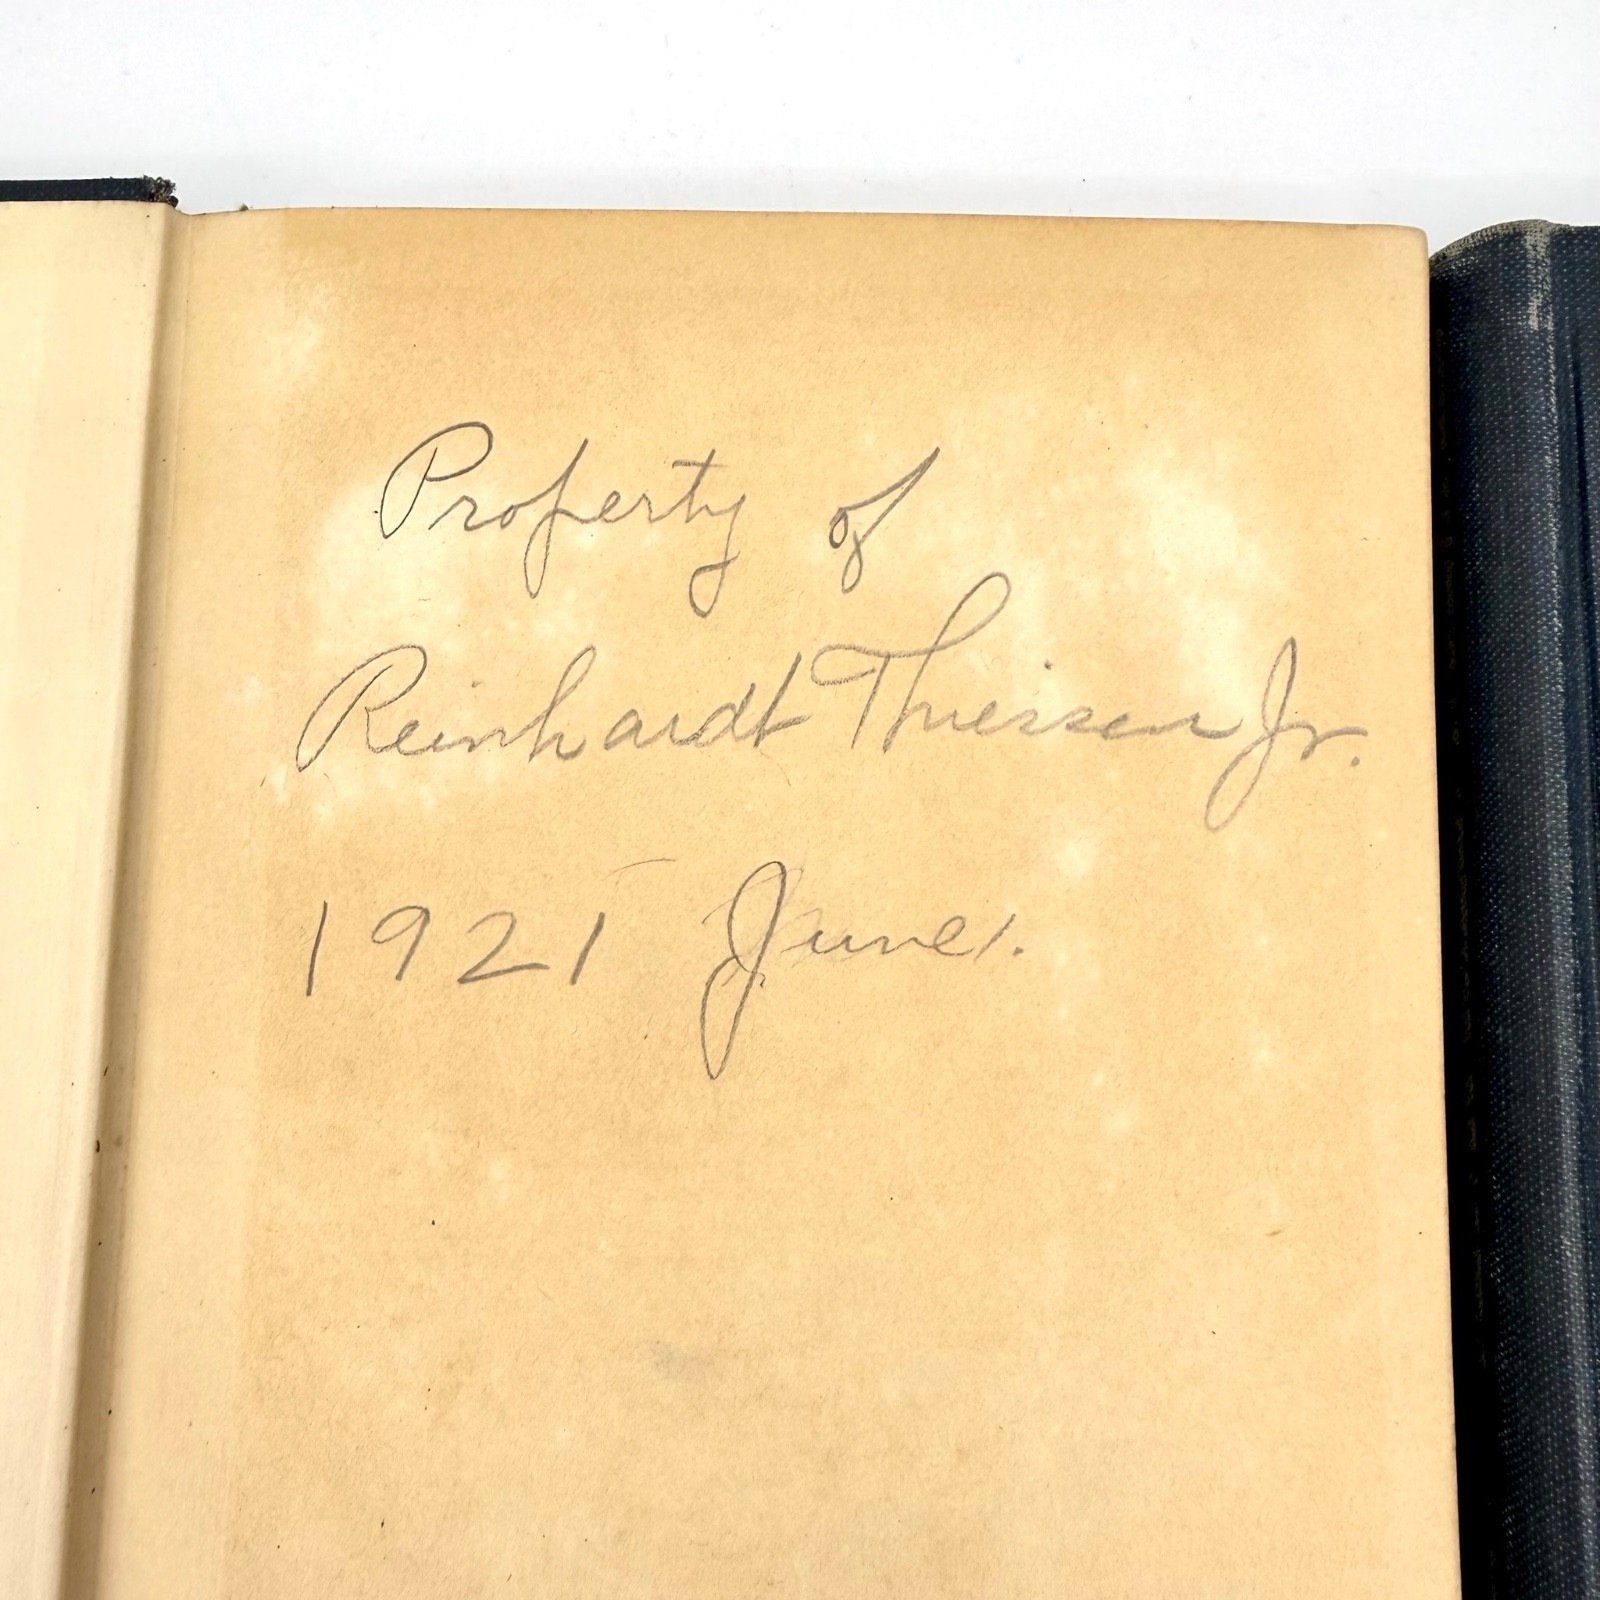 Property of
Reinhardt Thiessen Jr.
1921 June 1.